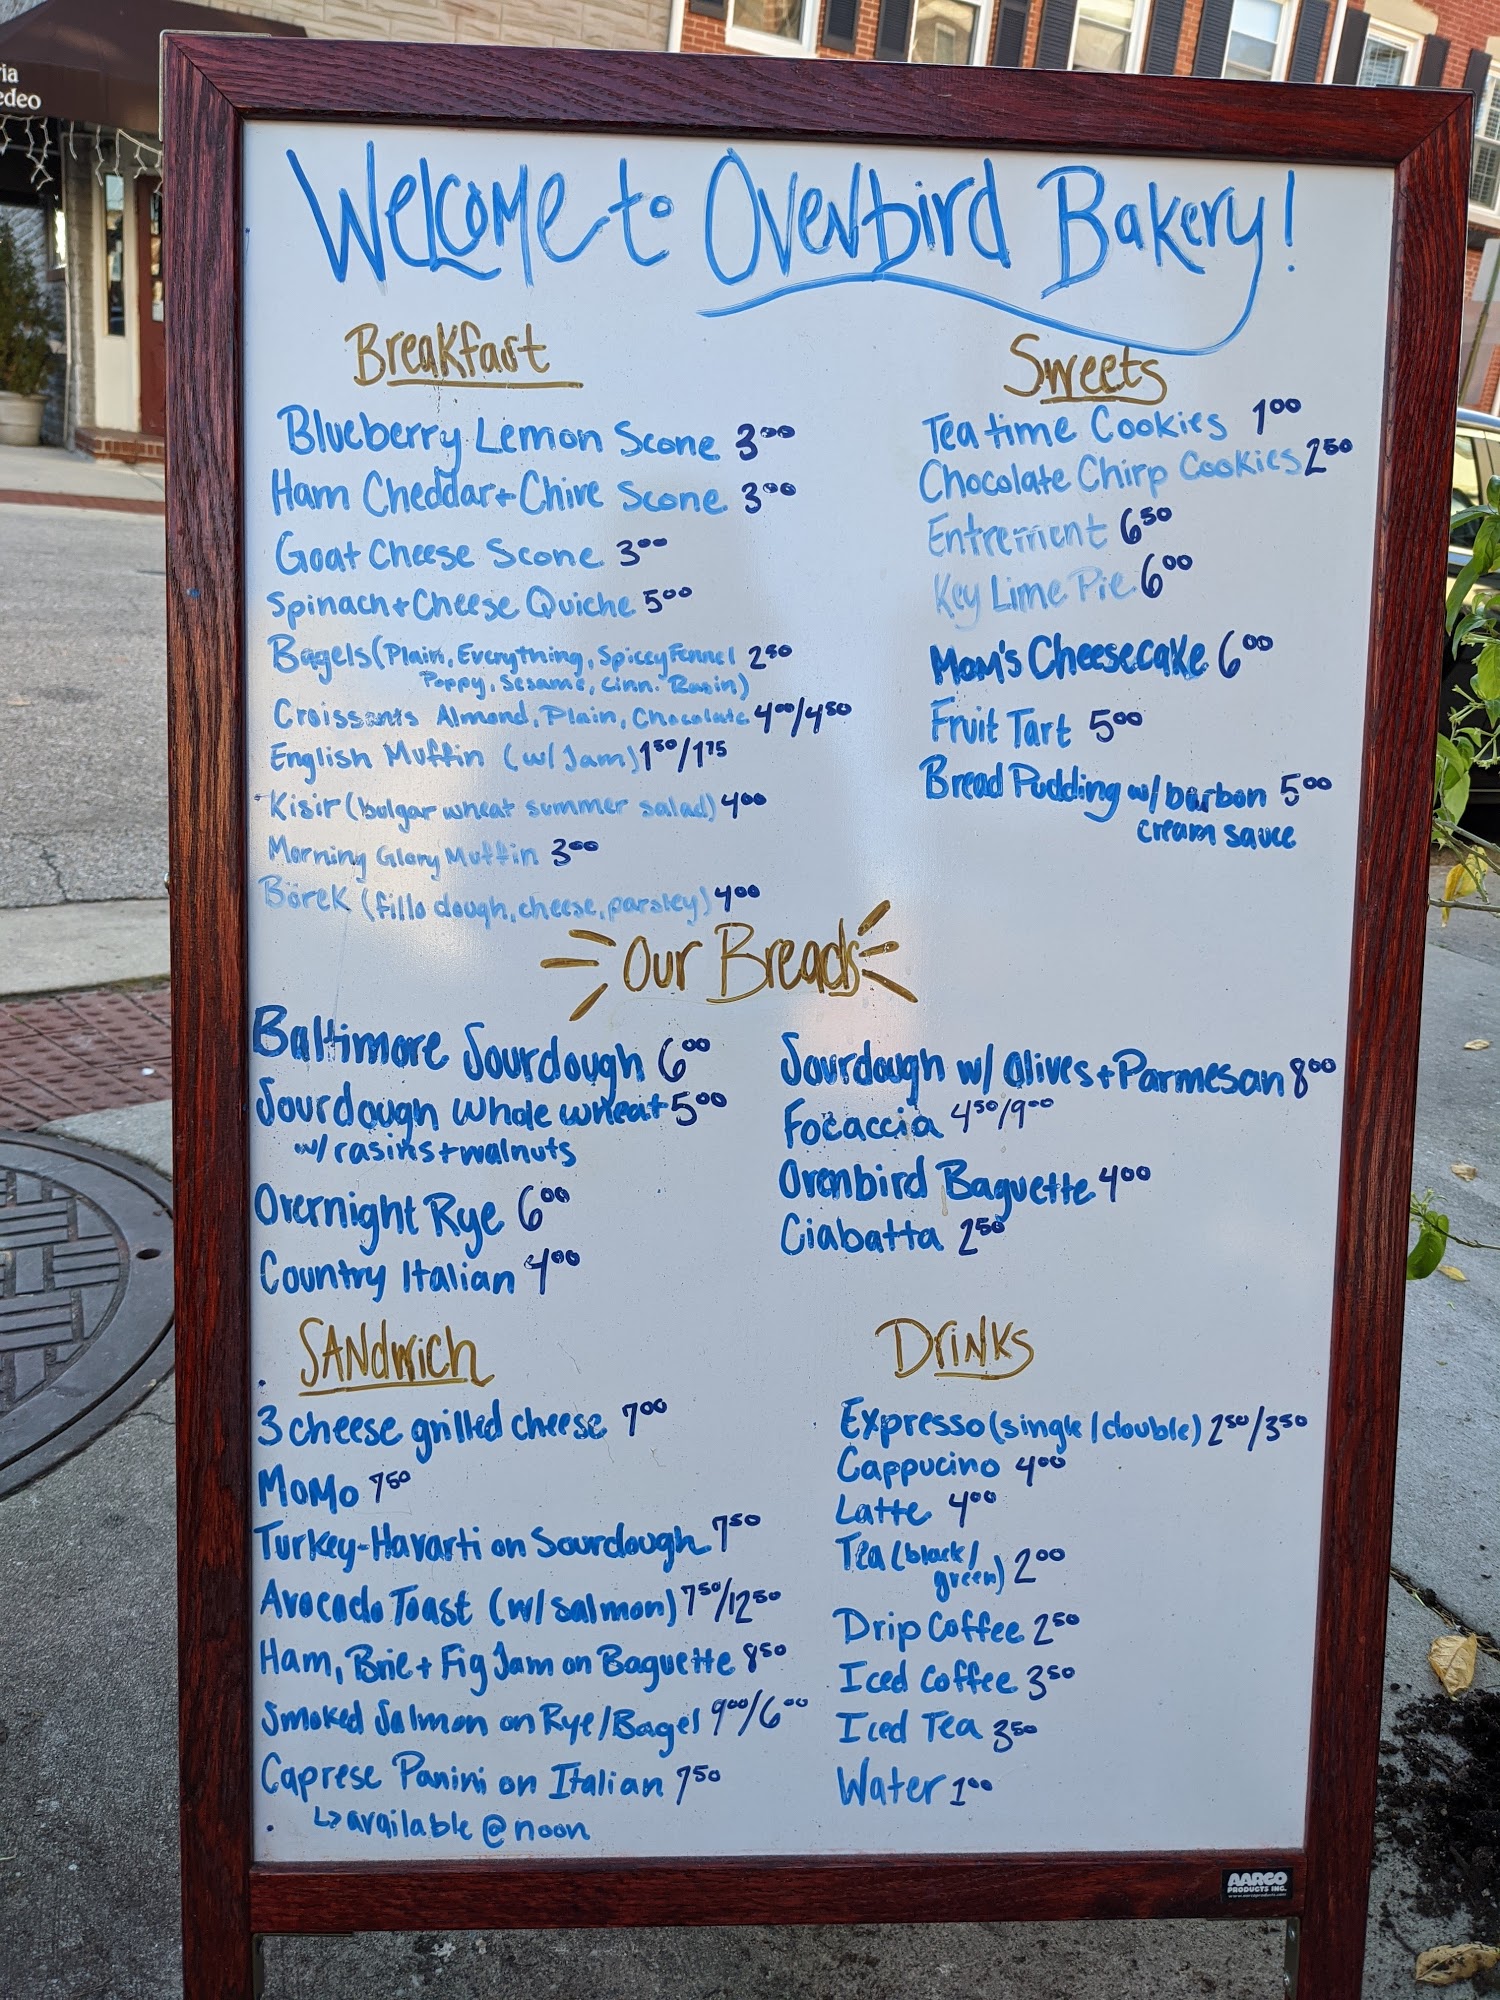 ria
edeo
Welcome to Ovenbird Bakery!
Breakfast
Blueberry Lemon Scone 3.00
Ham Cheddar + Chive Scone 3.00
Goat Cheese Scone 3.00
Spinach + Cheese Quiche 5.00
Bagels (Plain, Everything, Spicey Fennel 2.50
Poppy, Sesame, Cinn. Rasin)
Croissants Almond, Plain, Chocolate 4.00/4.50
English Muffin (w/ Jam) 1.50/1.75
Kisir (bulgar wheat summer salad) 4.00
Morning Glory Muffin 3.00
Börek (fillo dough, cheese, parsley) 4.00
Sweets
Tea time Cookies 1.00
Chocolate Chirp Cookies 2.50
Entrement 6.50
Key Lime Pie 6.00
Mom's Cheesecake 6.00
Fruit Tart 5.00
Bread Pudding w/ barbon 5.00
cream sauce
Our Breads
Baltimore Sourdough 6.00
Sourdough whole wheat 5.00
w/ rasins + walnuts
Overnight Rye 6.00
Country Italian 4.00
Sourdough w/ Olives + Parmesan 8.00
Focaccia 4.50/9.00
Ovenbird Baguette 4.00
Ciabatta 2.50
SANdwich
3 cheese grilled cheese 7.00
MoMo 7.50
Turkey-Havarti on Sourdough 7.50
Avocado Toast (w/ salmon) 7.50/12.50
Ham, Brie + Fig Jam on Baguette 8.50
Smoked Salmon on Rye/Bagel 9.00/6.00
Caprese Panini on Italian 7.50
↳ available @ noon
Drinks
Expresso (single/double) 2.50/3.50
Cappucino 4.00
Latte 4.00
Tea (black/
green) 2.00
Drip Coffee 2.50
Iced Coffee 3.50
Iced Tea 3.50
Water 1.00
AARCO
PRODUCTS INC.